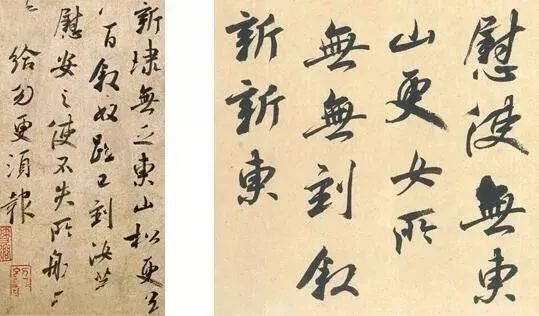 新埭無乏東山松更
百叙奴已到汝
慰安之使不失所船
給勿更須報
慰使無東
山更女所
無無到叙
新新東